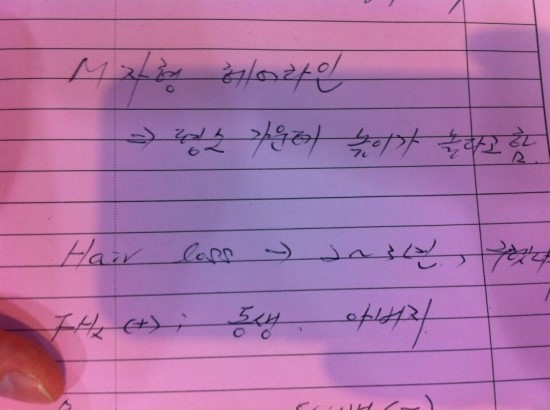 M자형 헤어라인
⇒ 평소 가운데 높이가 높다고 함.
Hair loss → 2~3년전,
FHx (+) : 동생. 아버지
(-)